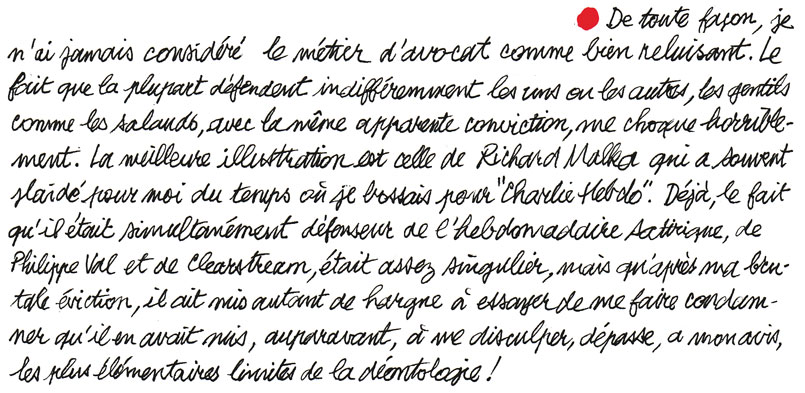 De toute façon, je
n'ai jamais considéré le métier d'avocat comme bien reluisant. Le
fait que la plupart défendent indifféremment les uns ou les autres, les gentils
comme les salauds, avec la même apparente conviction, me choque horrible-
ment. La meilleure illustration est celle de Richard Malka qui a souvent
plaidé pour moi du temps où je bossais pour "Charlie Hebdo". Déjà, le fait
qu'il était simultanément défenseur de l'hebdomadaire satirique, de
Philippe Val et de Clearstream, était assez singulier, mais qu'après ma bru-
tale éviction, il ait mis autant de hargne à essayer de me faire condam-
ner qu'il en avait mis, auparavant, à me disculper, dépasse, a mon avis,
les plus élémentaires limites de la déontologie !